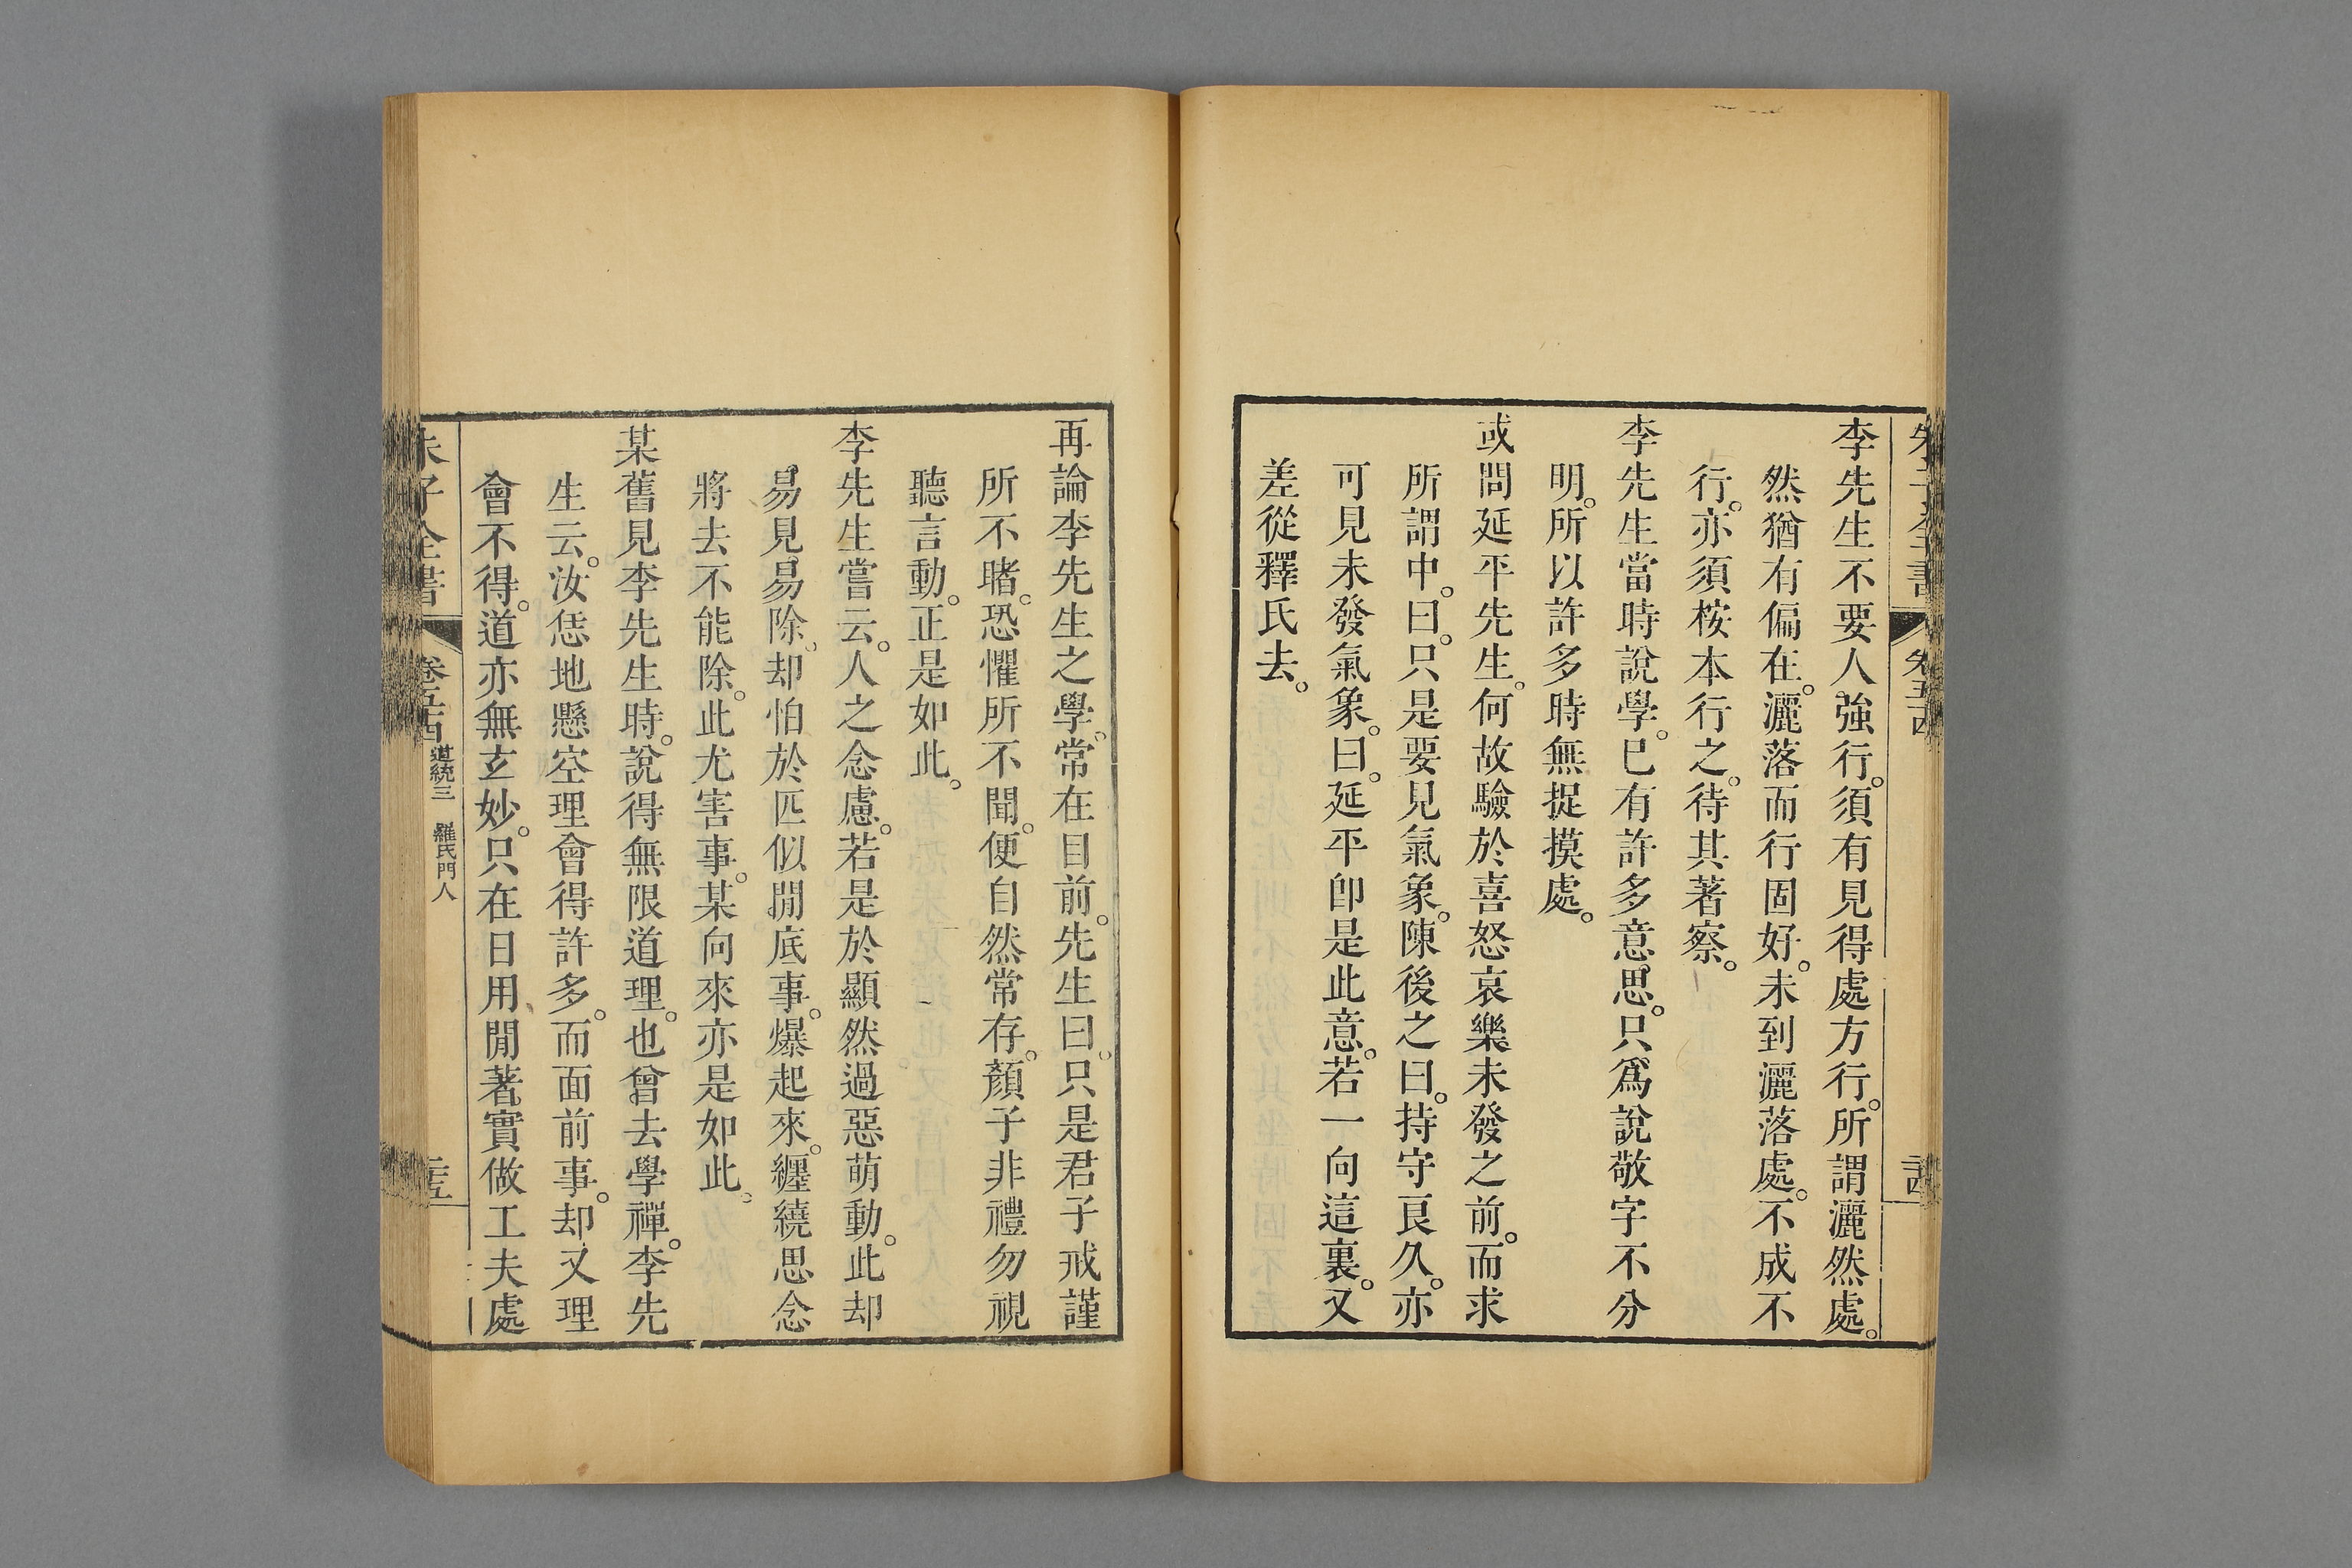 李先生不要人強行。須有見得處方行。所謂灑然處。
然猶有偏在。灑落而行固好。未到灑落處。不成不
行。亦須桉本行之。待其著察。
李先生當時說學。已有許多意思。只爲說敬字不分
明。所以許多時無捉摸處。
或問延平先生。何故驗於喜怒哀樂未發之前。而求
所謂中。曰。只是要見氣象。陳後之曰。持守良久。亦
可見未發氣象。曰。延平卽是此意。若一向這裏。又
差從釋氏去。
再論李先生之學。常在目前。先生曰。只是君子戒謹
所不睹。恐懼所不聞。便自然常存。顏子非禮勿視
聽言動。正是如此。
李先生嘗云。人之念慮。若是於顯然過惡萌動。此却
易見易除。却怕於匹似閒底事。爆起來。纏繞思念
將去不能除。此尤害事。某向來亦是如此。
某舊見李先生時。說得無限道理。也曾去學禪。李先
生云。汝恁地懸空理會得許多。而面前事。却又理
會不得。道亦無玄妙。只在日用閒著實做工夫處
朱子全書
卷五十四
道統三 羅氏門人